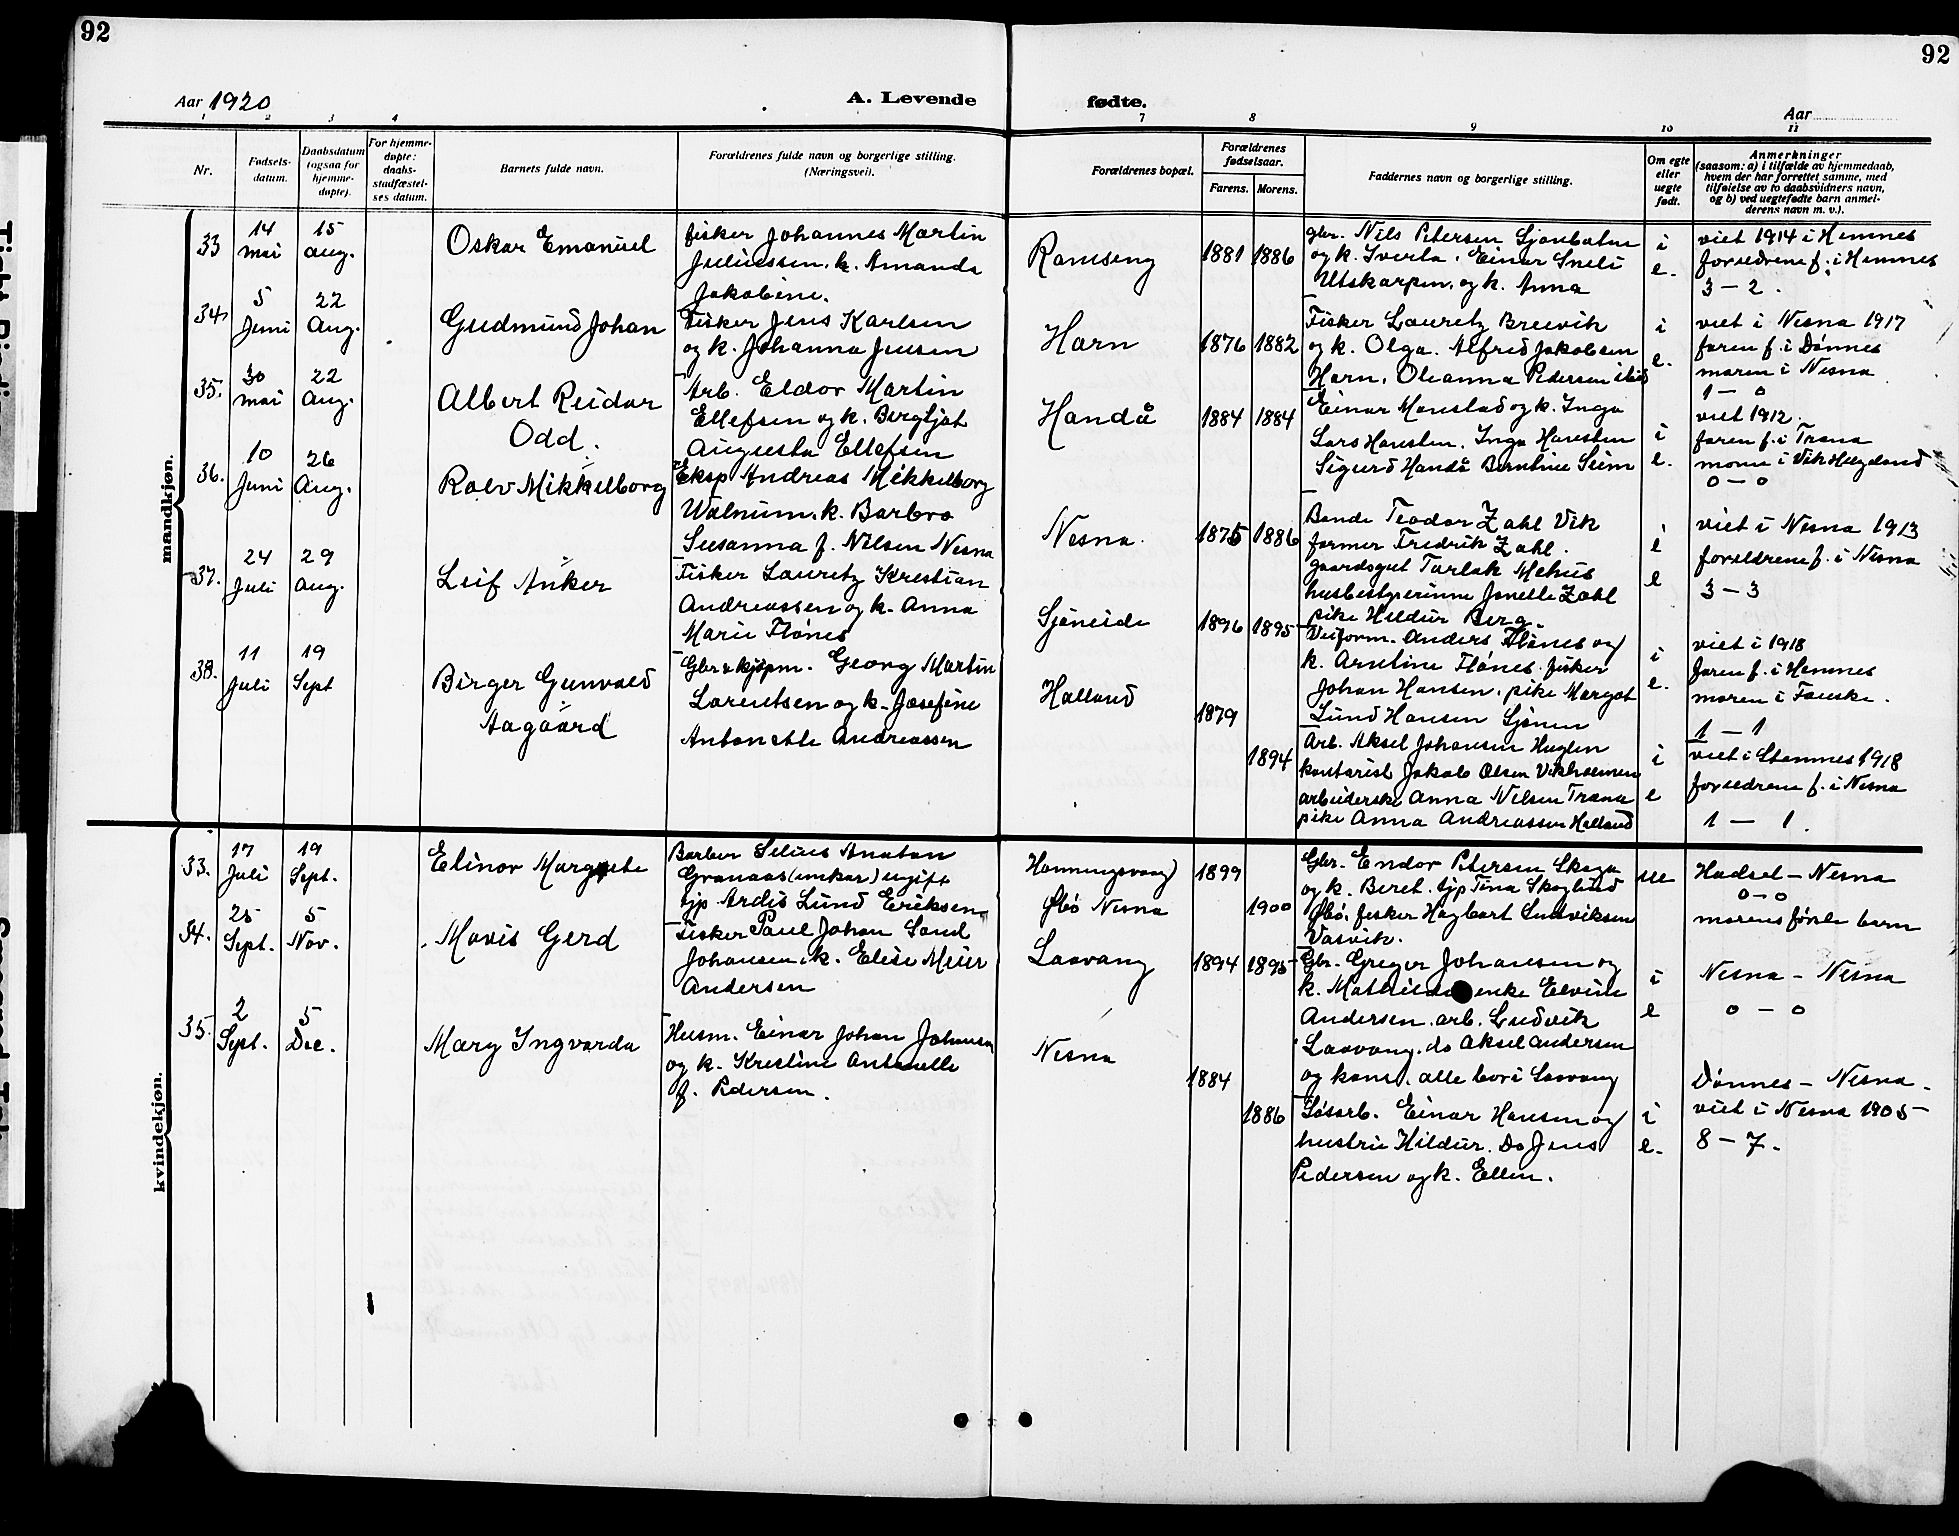 92
92
Aar 1920
A. Levende
fødte.
Aar
1 2 3 4 7 8 9 10 11
Nr.
Fødsels-
datum.
Daabsdatum
(ogsaa for
hjemme-
døpte).
For hjemme-
døpte:
daabs-
stadfæstel-
ses datum.
Barnets fulde navn.
Forældrenes fulde navn og borgerlige stilling.
(Næringsvei).
Forældrenes bopæl.
Forældrenes
fødselsaar.
Farens. Morens.
Faddernes navn og borgerlige stilling.
Om egte
eller
uegte
født.
Anmerkninger
(saasom: a) i tilfælde av hjemmedaab,
hvem der har forrettet samme, med
tilføielse av to daabsvidners navn,
og b) ved uegtefødte barn anmel-
derens navn m. v.).
mandkjøn.
33
14
mai
15
aug.
Oskar Emanuel
fisker Johannes Martin
Juliussen, k. Amanda
Jakobine.
Ramseng
1881 1886
gbr. Nils Petersen Sjonbotn
og k. Sverla. Einar Sneli
Utskarpen, og k. Anna
i
e.
viet 1914 i Hemnes
foreldrene f. i Hemnes
3 - 2.
34
5
Juni
22
Aug.
Gudmund Johan
Fisker Jens Karlsen
og k. Johanna Jensen
Horn
1876 1882
Fisker Lauretz Breivik
og k. Olga. Alfred Jakobsen
Horn, Oleanna Pedersen ibid
i
e.
viet i Nesna 1917
faren f. i Dønnes
moren i Nesna
1 - 0
35.
30
mai
22
Aug.
Albert Reidar
Odd.
Arb. Eldor Martin
Ellefsen og k. Bergljot
Augusta Ellefsen
Handå
1884 1884
Einar Monstad og k. Inga
Lars Hansten. Inga Hansten
Sigurd Handå Berntine Seim
i
e.
viet 1912.
faren f. i Træna
moren i Vik Helgeland
0 - 0
36.
10
Juni
26
Aug.
Rolv Mikkelborg
Eksp Andreas Mikkelborg
Walnum, k. Barbro
Susanna f. Nilsen Nesna
Nesna.
1875 1886
Bonde Teodor Zahl Vik
farmer Fredrik Zahl.
gaardsgut Torlak Mehus
husbestyrerinne Jonelle Zahl
pike Hildur Berg.
i
e
viet i Nesna 1913
foreldrene f. i Nesna
3 - 3
37.
24
Juli
29
Aug.
Leif Anker
Fisker Lauretz Kristian
Andreassen og k. Anna
Marie Flønes
Sjoneide
1896 1895
Veiform. Anders Flønes og
k. Arntine Flønes. fisker
Johan Hansen, pike Margot
Lund Hansen Sjonen
i
e.
viet i 1918
faren f. i Hemnes
moren i Fauske.
1 - 1
38.
11
Juli
19
Sept
Birger Gunvald
Aagaard
Gbr & kjøpm. Georg Martin
Lorentsen og k. Josefine
Antonette Andreassen
Halland
1879
1894
Arb. Aksel Johansen Huglen
kontorist Jakob Olsen Vikholmen
arbeiderske Anna Nilsen Træna
pike Anna Andreassen Halland
i
e
viet i Stamnes 1918
foreldrene f. i Nesna
1 - 1.
kvindekjøn.
33.
17
Juli
19
Sept.
Elinor Margrete
Barber Selius Anatan
Granaas (unkar) ugift
tjp Ardis Lund Eriksen
Honningsvaag
Øbø Nesna
1899
1900
Gbr. Endor Petersen Skoga
og k. Beret. tjp Tina Skoglund
Øbø, fisker Hagbart Ludviksen
Vasvik.
ue
Hadsel - Nesna
0 - 0
morens første barn
34.
25
Sept.
5
Nov.
Mavis Gerd
Fisker Paul Johan Sand
Johansen, k. Elise Meier
Andersen
Laavong
1894 1895
Gbr. Greger Johansen og
k. Mathilde enke Elvine
Andersen, arb. Ludvik
Laavong, do Aksel Andersen
og kone, alle bor i Laavong
i
e
Nesna - Nesna
0 - 0
35.
2
Sept.
5
Dec.
Mary Ingvarda
Husm. Einar Johan Johansen
og k. Kristine Antonelle
f. Pedersen.
Nesna
1884
1886
Løsarb. Einar Hansen og
hustru Hildur. Do Jens
Pedersen og k. Ellen.
i
e.
Dønnes - Nesna.
viet i Nesna 1905 -
8 - 7.